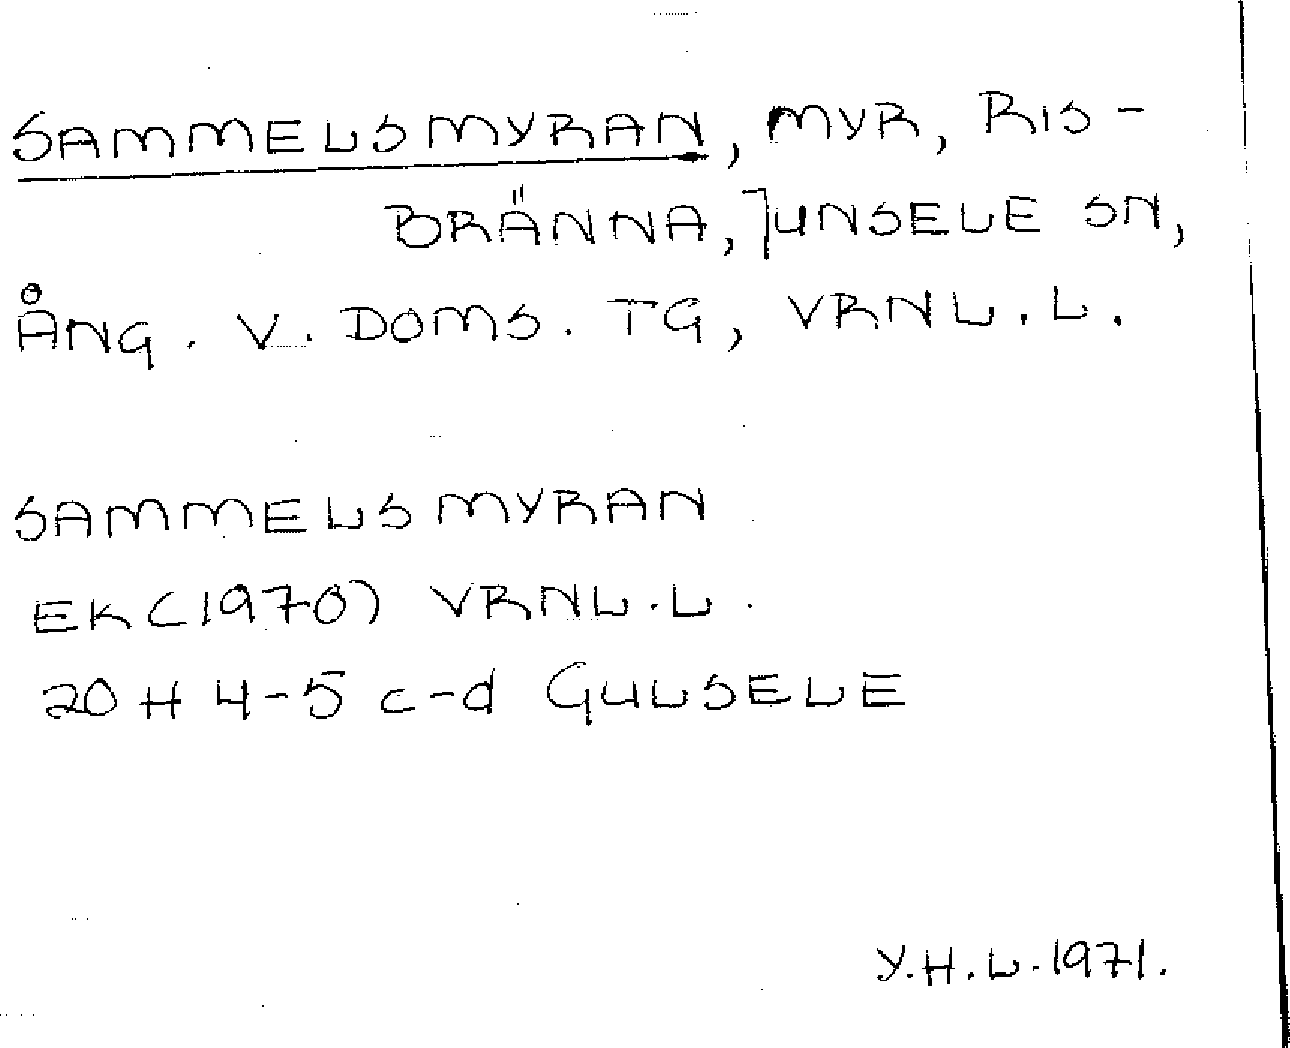 SAMMELSMYRAN, MYR, RIS-
BRÄNNA, JUNSELE SN,
ÅNG. V. DOMS. TG, VRNL.L.
SAMMELSMYRAN
EK(1970) VRNL.L.
20 H 4-5 c-d GULSELE
Y.H.L.1971.